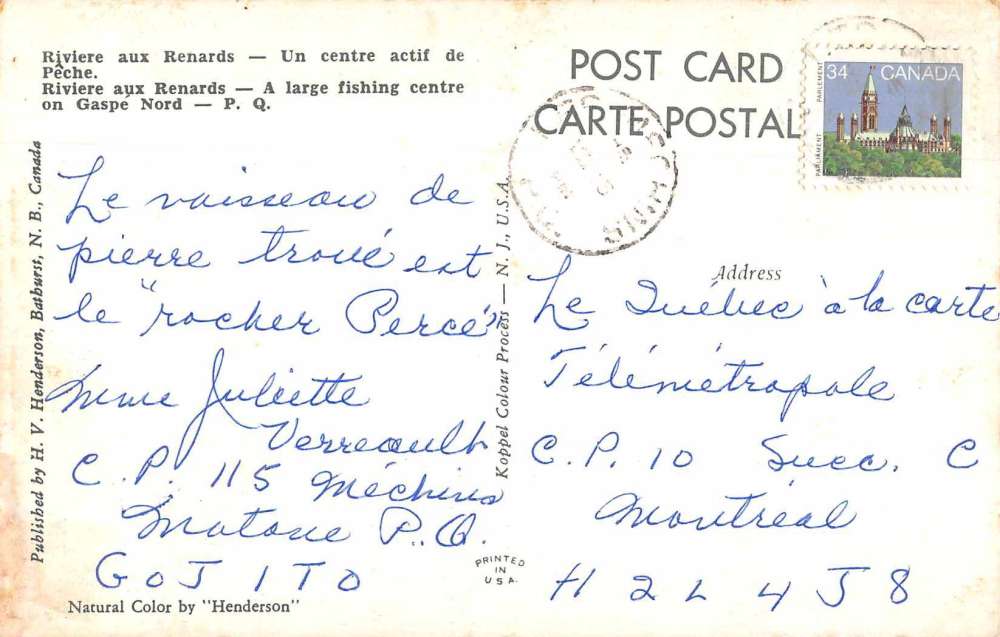 Riviere aux Renards — Un centre actif de
Pêche.
Riviere aux Renards — A large fishing centre
on Gaspe Nord — P. Q.
Published by H. V. Henderson, Bathurst, N. B., Canada
Le vaisseau de
pierre troué est
le "rocher Percé"
Mme Juliette
Verreault
C. P. 115 Méchins
Matane P.Q.
G0J 1T0
Natural Color by "Henderson"
Koppel Colour Process — N. J., U.S.A.
PRINTED
IN
U S A.
POST CARD
CARTE POSTALE
34 CANADA
PARLIAMENT PARLEMENT
Address
Le Québec à la carte
Télémétropole
C.P. 10 Succ. C
Montréal
H 2 L 4 J 8